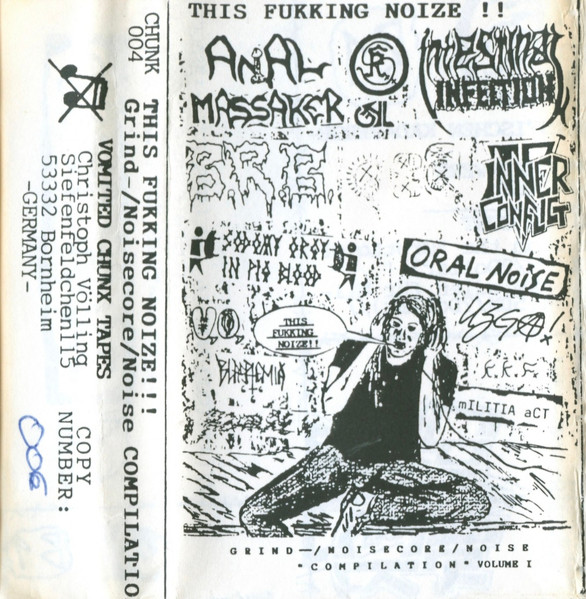 THIS FUKKING NOIZE !!
ANAL
MASSAKER
INTESTINAL
INFECTION
INNER
CONFLICT
SODOMY ORGY
IN PIG BLOOD
ORAL NOiSE
THIS
FUKKING
NOIZE!!
mILITIA aCT
GRIND-/NOISECORE/NOISE
"COMPILATION" VOLUME I
CHUNK
004
THIS FUKKING NOIZE!!!
Grind-/Noisecore/Noise COMPILATIO
VOMITED CHUNK TAPES
Christoph Völling
Siefenfeldchen115
53332 Bornheim
-GERMANY-
COPY
NUMBER:
006